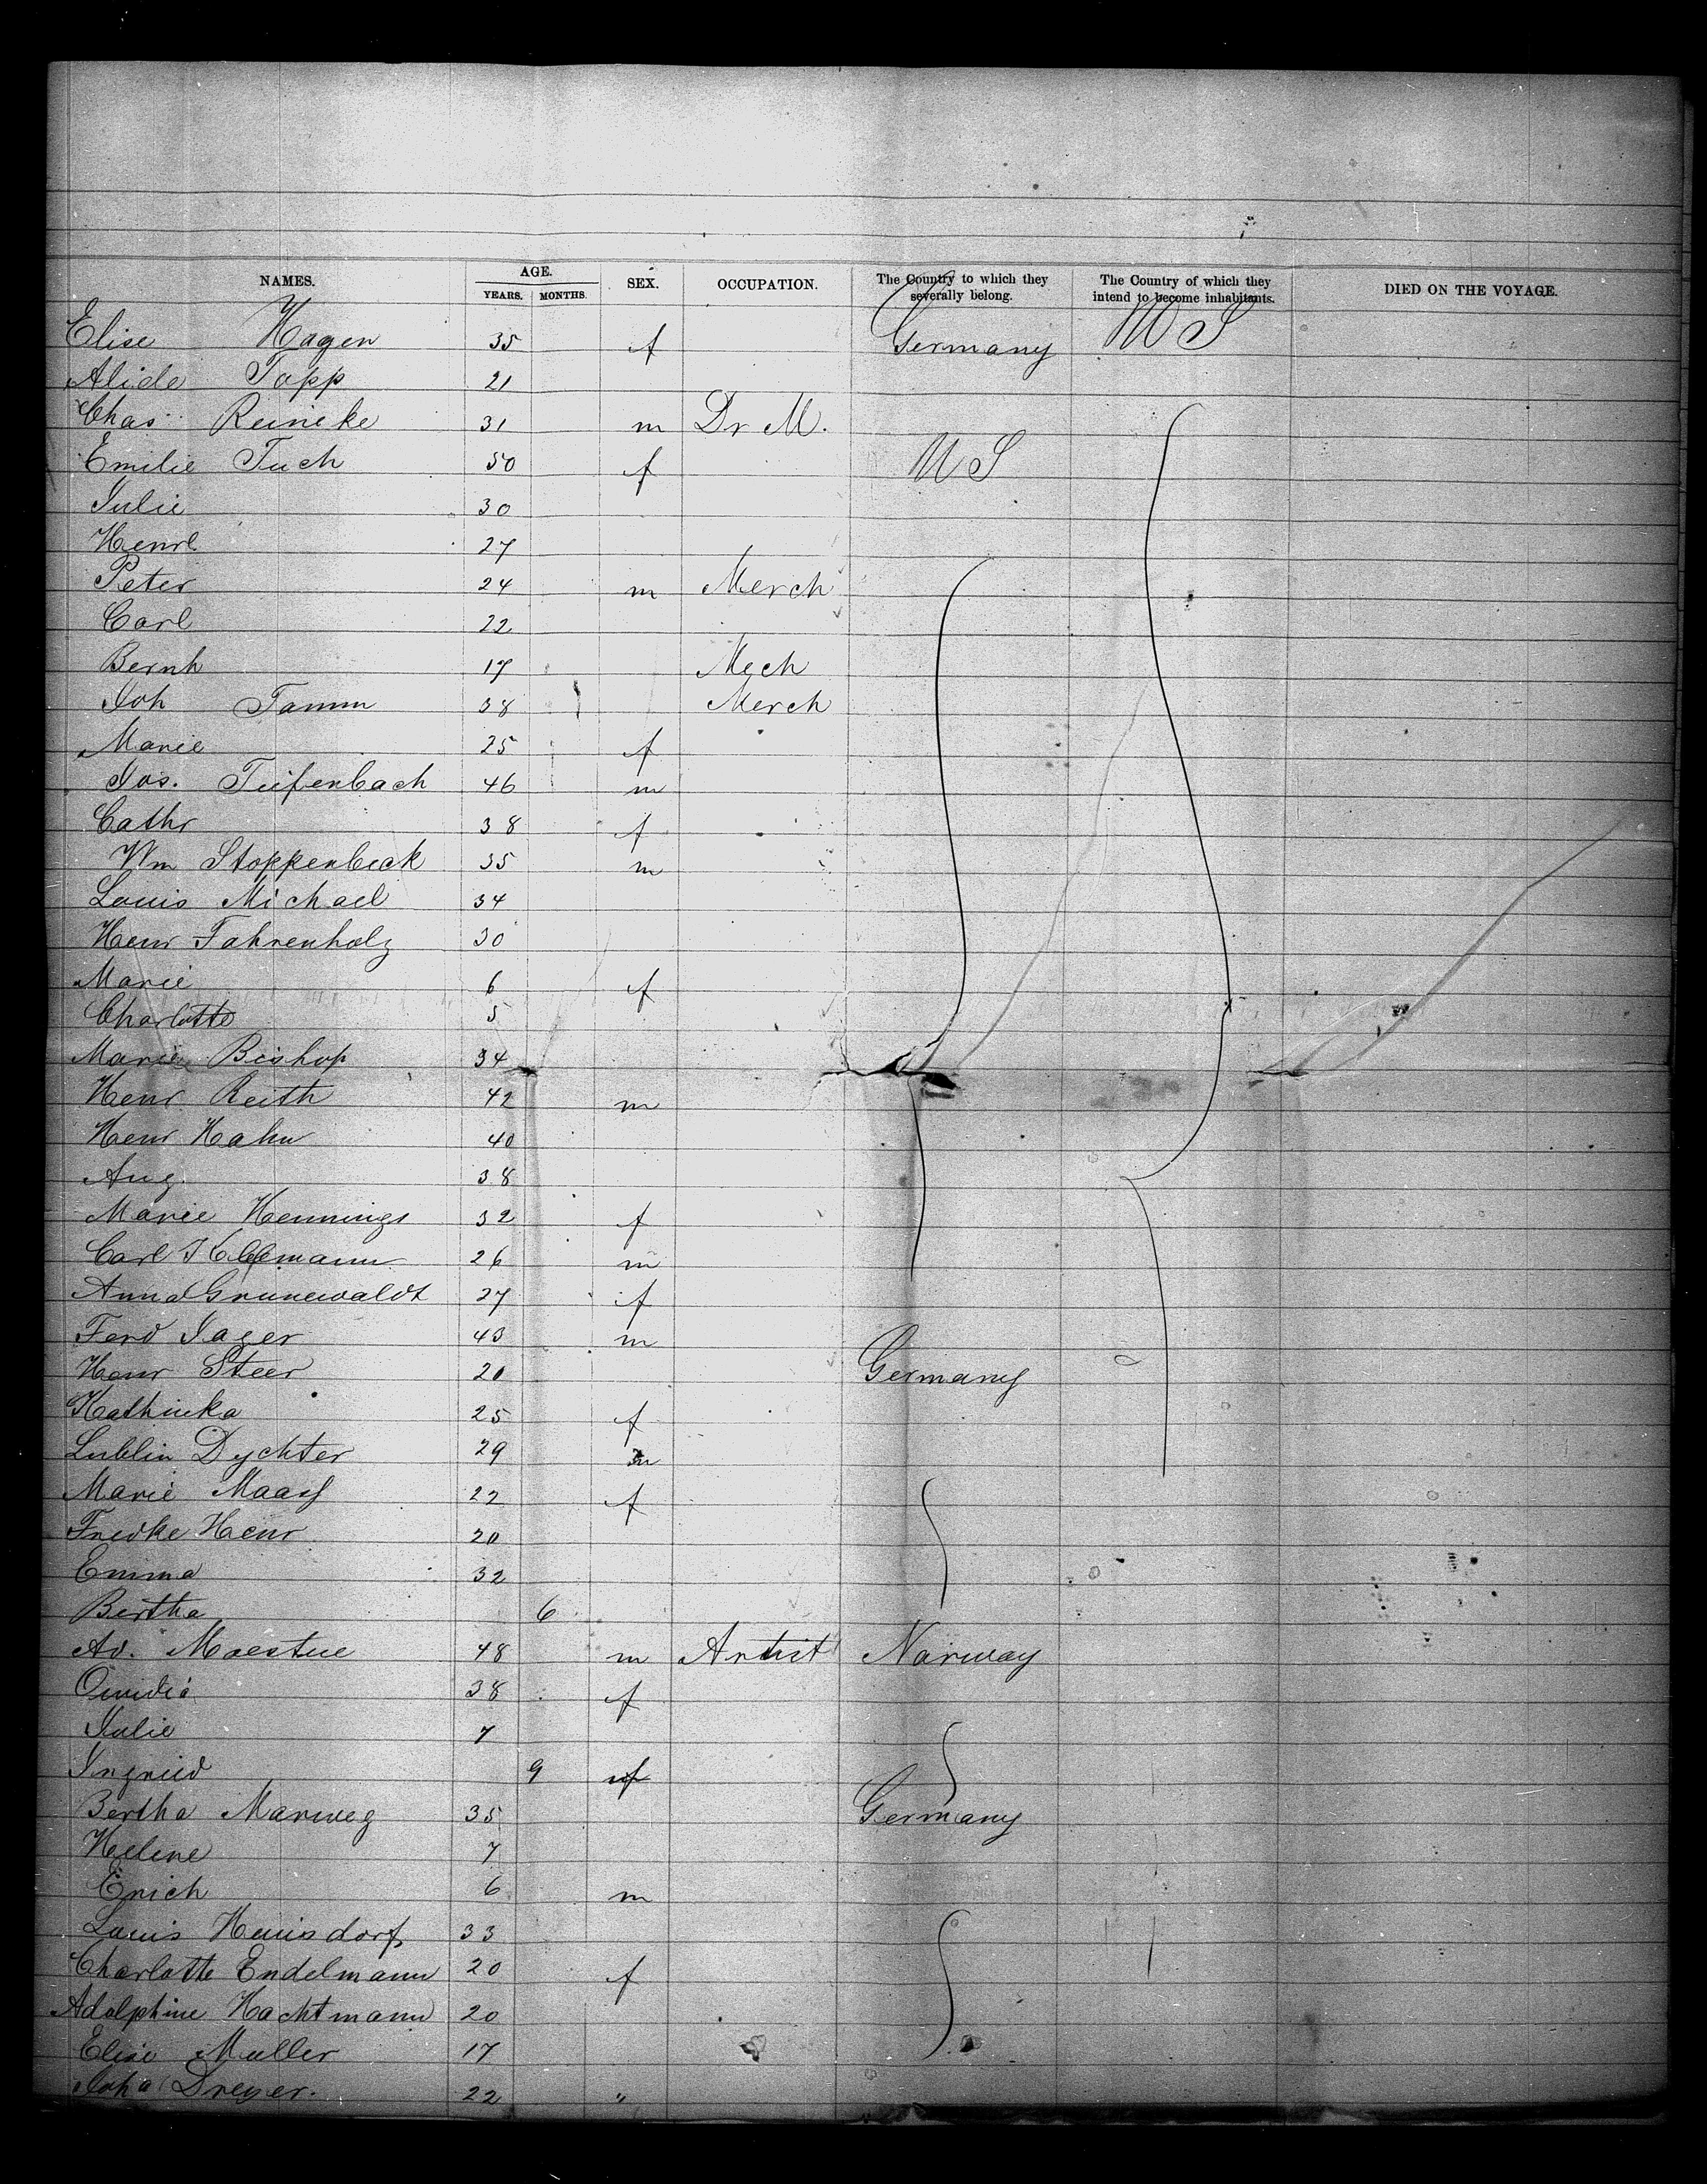 NAMES. AGE. YEARS. MONTHS. SEX. OCCUPATION. The Country to which they severally belong. The Country of which they intend to become inhabitants. DIED ON THE VOYAGE.
Elise Hagen 35 f Germany U S
Alide Topp 21
Chas Reineke 31 m Dr M.
Emilie Tuch 50 f U S
Julie 30
Henrl 27
Peter 24 m Merch
Carl 22
Bernh 17 Mech
Joh Tamm 38 Merch
Marie 25 f
Jos. Teifenbach 46 m
Cathr 38 f
Wm Stoppenbeck 35 m
Louis Michael 34
Henr Fahrenholz 30
Marie 6 f
Charlotte 5
Marie Bishop 34
Henr Reith 42 m
Henr Hahn 40
Aug. 38
Marie Hennings 32 f
Carl 26 m
Anna Grunewaldt 27 f
Ferd Jager 43 m
Henr Steer 20 Germany
Kathinka 25 f
Lublin Dychter 29 m
Marie Maass 22 f
Fredke Henr 20
Emma 32
Bertha 6
Ad. Moestue 48 m Artist Norway
38 f
Julie 7
Ingried 9 f
Bertha Marweg 35 Germany
Helene 7
Erich 6 m
Louis Henisdorf 33
Charlotte Endelmann 20 f
Adolphine Hachtmann 20
Elise Muller 17
Joha Dreyer. 22 "